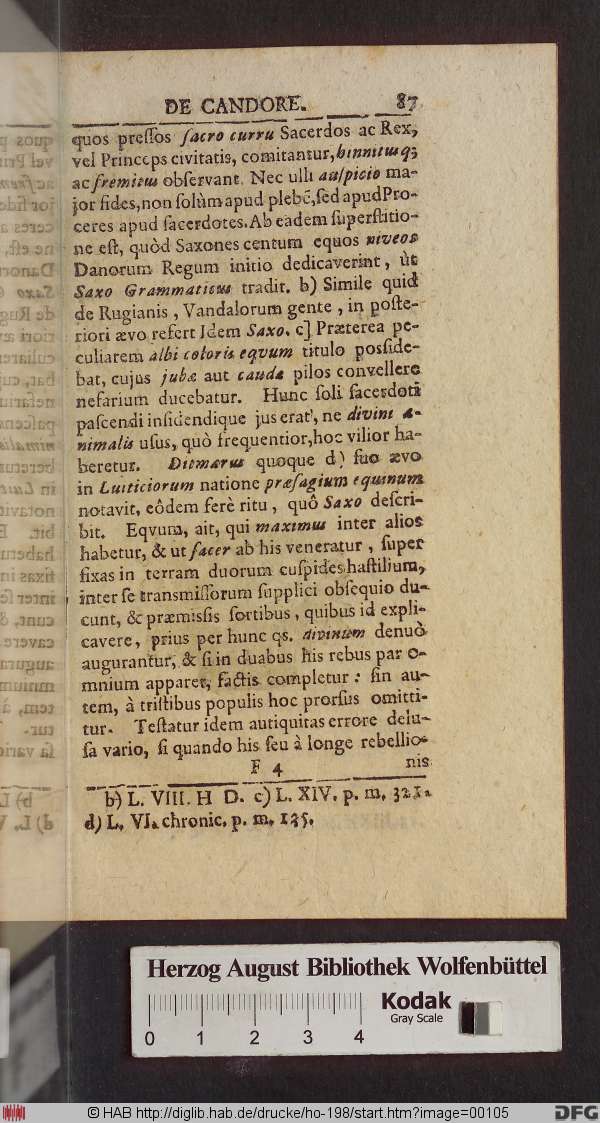 DE CANDORE. 87
quos pressos sacro curru Sacerdos ac Rex,
vel Princeps civitatis, comitantur, hinnitusq;
ac fremitus observant. Nec ulli auspicio ma-
jor fides, non solùm apud plebē, sed apud Pro-
ceres apud sacerdotes. Ab eadem superstitio-
ne est, quòd Saxones centum equos niveos
Danorum Regum initio dedicaverint, ut
Saxo Grammaticus tradit. b) Simile quid
de Rugianis, Vandalorum gente, in poste-
riori ævo refert Idem Saxo. c] Præterea pe-
culiarem albi coloris eqvum titulo posside-
bat, cujus jubæ aut caudæ pilos convellere
nefarium ducebatur. Hunc soli sacerdoti
pascendi insidendique jus erat, ne divini a-
nimalis usus, quò frequentior, hoc vilior ha-
beretur. Ditmarus quoque d) suo ævo
in Luiticiorum natione præsagium equinum
notavit, eôdem ferè ritu, quô Saxo descri-
bit. Eqvum, ait, qui maximus inter alios
habetur, & ut sacer ab his veneratur, super
fixas in terram duorum cuspides hastilium,
inter se transmissorum supplici obsequio du-
cunt, & præmissis sortibus, quibus id expli-
cavere, prius per hunc qs. divinum denuò
augurantur, & si in duabus his rebus par o-
mnium apparet, factis completur: sin au-
tem, à tristibus populis hoc prorsus omitti-
tur. Testatur idem autiquitas errore delu-
sa vario, si quando his seu à longe rebellio-
F 4 nis
b) L. VIII. H D. c) L. XIV. p. m. 321.
d) L. VI. chronic. p. m. 135.
Herzog August Bibliothek Wolfenbüttel
Kodak
Gray Scale
0 1 2 3 4
© HAB http://diglib.hab.de/drucke/ho-198/start.htm?image=00105
DFG